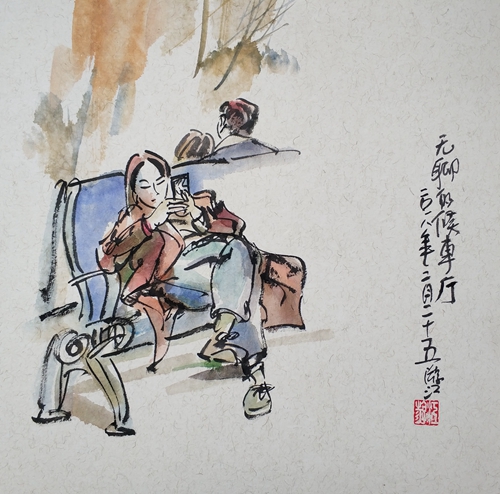 无聊的候車厅
二〇一八年二月二十五